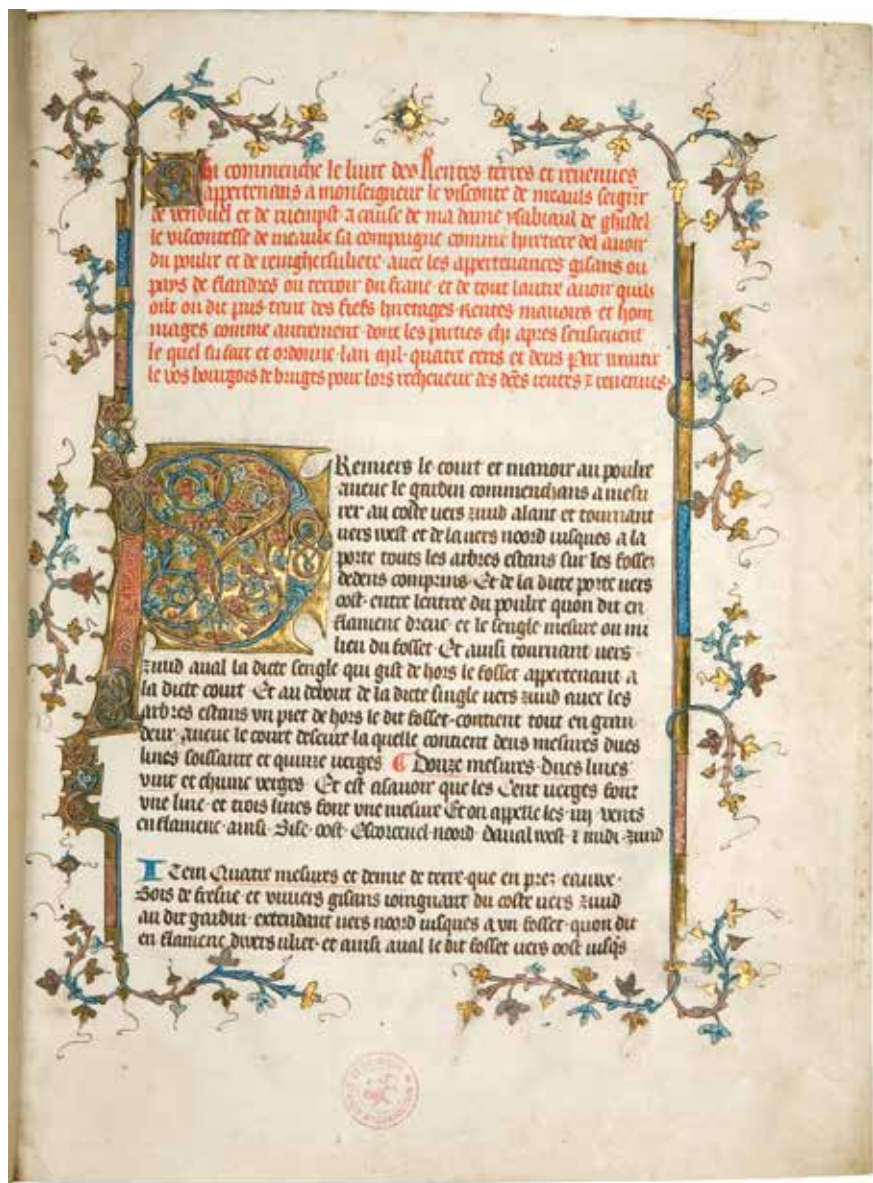 Chi commenche le livre des Rentes terres et revenues
appertenans a monseigneur le visconte de meauls seignr
de vendueil et de ruempst a cause de ma dame ysabiaul de ghistel
le viscontesse de meaulx sa compaigne comme hiretiere del avoir
du poulre et de reninghersuliete avec les appertenances gisans ou
pays de flandres ou terroir du franc et de tout lautre avoir quilz
ont ou dit pais tant des fiefs hiretages Rentes manoirs et hom
mages comme autrement dont les parties chi apres sensievent
le quel fu fait et ordonne lan mil quatre cens et deus par martin
le vos bourgois de bruges pour lors recheveur des dces rentes z revenues
PRemiers le court et manoir au poulre
aueuc le gardin commenchans a mesu
rer au coste vers zuud alant et tournant
vers west et de la vers noord iusques a la
porte touts les arbres estans sur les fossez
dedens comprins Et de la dicte porte vers
oost entre lentree du poulre quon dit en
flamenc dreve et le sengle mesure ou mi
lieu du fosset Et ainsi tournant vers
zuud aval la dicte sengle qui gist de hors le fosset appertenant a
la dicte court Et au debout de la dicte single vers zuud avec les
arbres estans un piet de hors le dit fosset contient tout en gran
deur aueuc le court deseure la quelle contient deus mesures dues
lines soissante et quinze verges Douze mesures dues lines
vint et chinnc verges Et est asavoir que les Cent verges font
une line et trois lines font une mesure Et on appelle les iiij vents
en flamenc ainsi Bise oost Escorcuel noord Daval west z midi zuud
ITem Quatre mesures et demie de terre que en prez eauwe
Bois de fresne et viviers gisans ioingnant du coste vers zuud
au dit gardin extendant vers noord iusques a un fosset quon dit
en flamenc divers vliet et ainsi aval le dit fosset vers oost iusqs